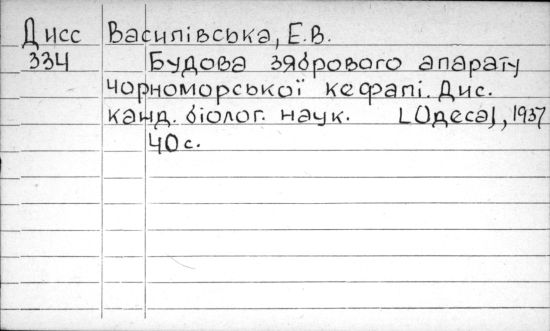 Дисс Василівська, Е.В.
334 Будова зябрового апарату
чорноморської кефалі. Дис.
канд. біолог. наук. [Одеса], 1937
40 с.